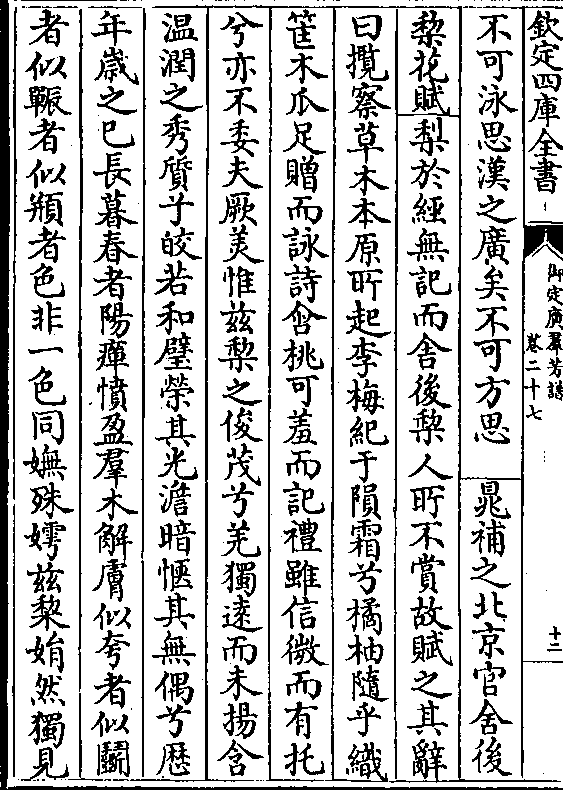 欽定四庫全書
御定廣羣芳譜
卷二十七
十二
不可泳思漢之廣矣不可方思 晁補之北京官舍後
梨花賦 梨於經無記而舍後梨人所不賞故賦之其辭
曰攬察草木本原所起李梅紀于隕霜兮橘柚隨乎織
筐木瓜足贈而詠詩含桃可羞而記禮雖信微而有托
兮亦不委夫厥美惟兹梨之俊茂兮羌獨逺而未揚含
温潤之秀質于皎若和璧榮其光澹暗惬其無偶兮歴
年嵗之已長暮春者陽癉憤盈羣木解膚似夸者似鬬
者似䩄者似頩者色非一色同嫵殊嫮兹梨娟然獨見